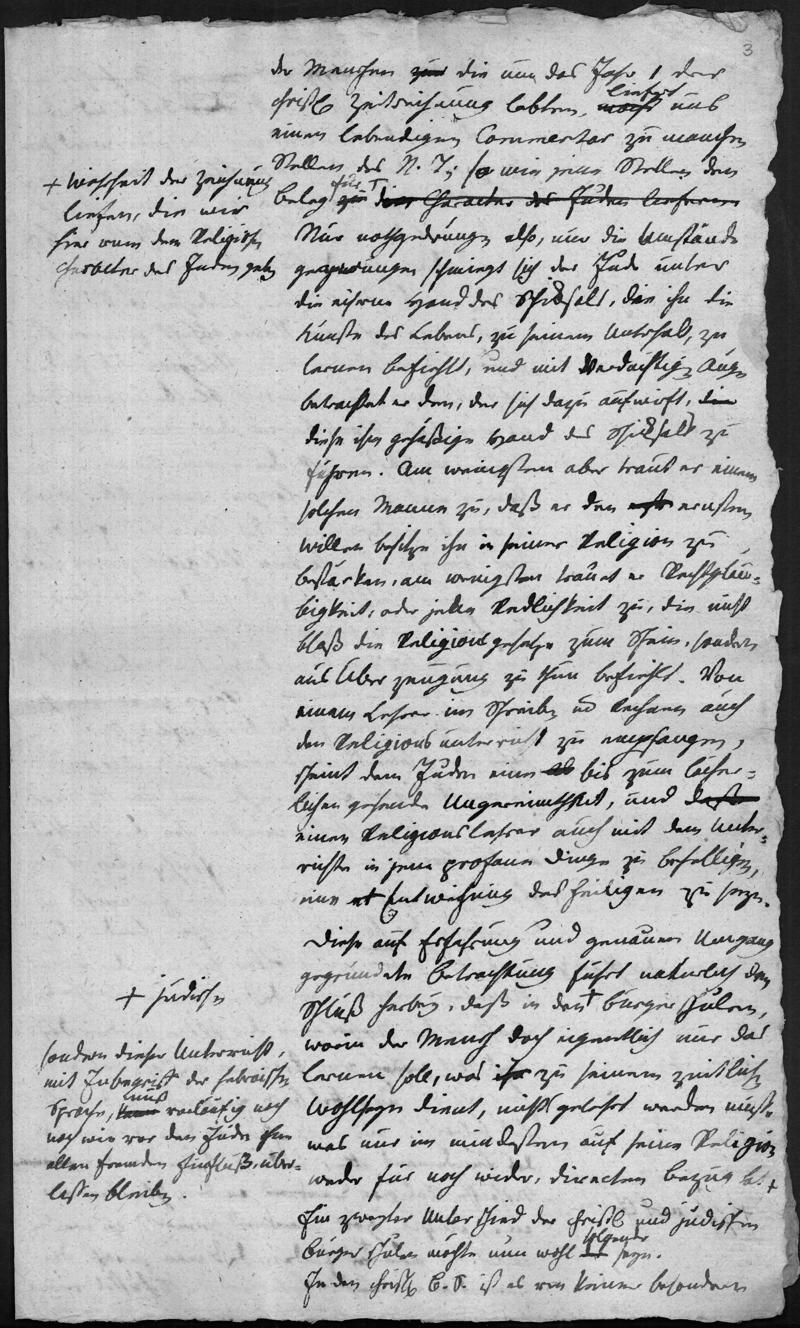 3
der Menschen zur die um das Jahr 1 der
christl Zeitrechnung lebten, macht liefert uns
einen lebendigen Commentar zu manchen
Stellen des N. T; so wie jene Stellen den
Beleg zu für + dem Character des Juden lieferen
+ Wahrheit der Zeichnung
liefern, die wir
hier von dem Religions
charakter des Juden geben
Nur nothgedrungen also, nur die Umstände
gezwungen schmiegt sich der Jude unter
die eiserne Hand des Schiksals, die ihn die
Künste des Lebens, zu seinem Unterhalt, zu
lernen befiehlt, und mit verdächtigen Augen
betrachtet er den, der sich dazu aufwirft, die
diese ihm gehäßige Hand des Schiksals zu
führen. Am wenigsten aber traut er einem
solchen Manne zu, daß er den ernsten
Willen besitze ihn in seiner Religion zu
bestärken, am wenigsten trauet er Rechtgläu=
bigkeit, oder jene Redlichkeit zu, die nicht
bloß die Religionsgesetze zum Schein, sondern
aus Überzeugung zu thun befiehlt. Von
einem Lehrer im Schreiben und Rechnen auch
den Religionsunterricht zu empfangen,
scheint dem Juden eine bis zum lächer=
lichen gehende Ungereimtheit, und daß
einen Religionslehrer auch mit dem Unter=
richte in jene profane Dinge zu befalligen,
eine Entweihung des Heiligen zu seyn.
Diese auf Erfahrung und genauen Umgang
gegründete Betrachtung führt natürlich den
Schluß herbey, daß in den + Bürgerschulen,
+ jüdischen
worin der Mensch doch eigentlich nur das
lernen soll, was ihm zu seinem zeitlichen
Wohlseyn dient, nichts gelehrt werden müßte
was nur im mindesten auf seine Religion
weder für noch wieder, directen Bezug hat +
sondern dieser Unterricht,
mit Inbegriff der hebräischen
Sprache, muß vorläufig noch
nach wie vor den Juden ohne
allen fremden Einfluß, über=
lassen bleiben.
Ein zweyter Unterschied der christl und jüdischen
Bürgerschulen möchte nun wohl folgender seyn.
In den christl B. S. ist es von keiner besondern